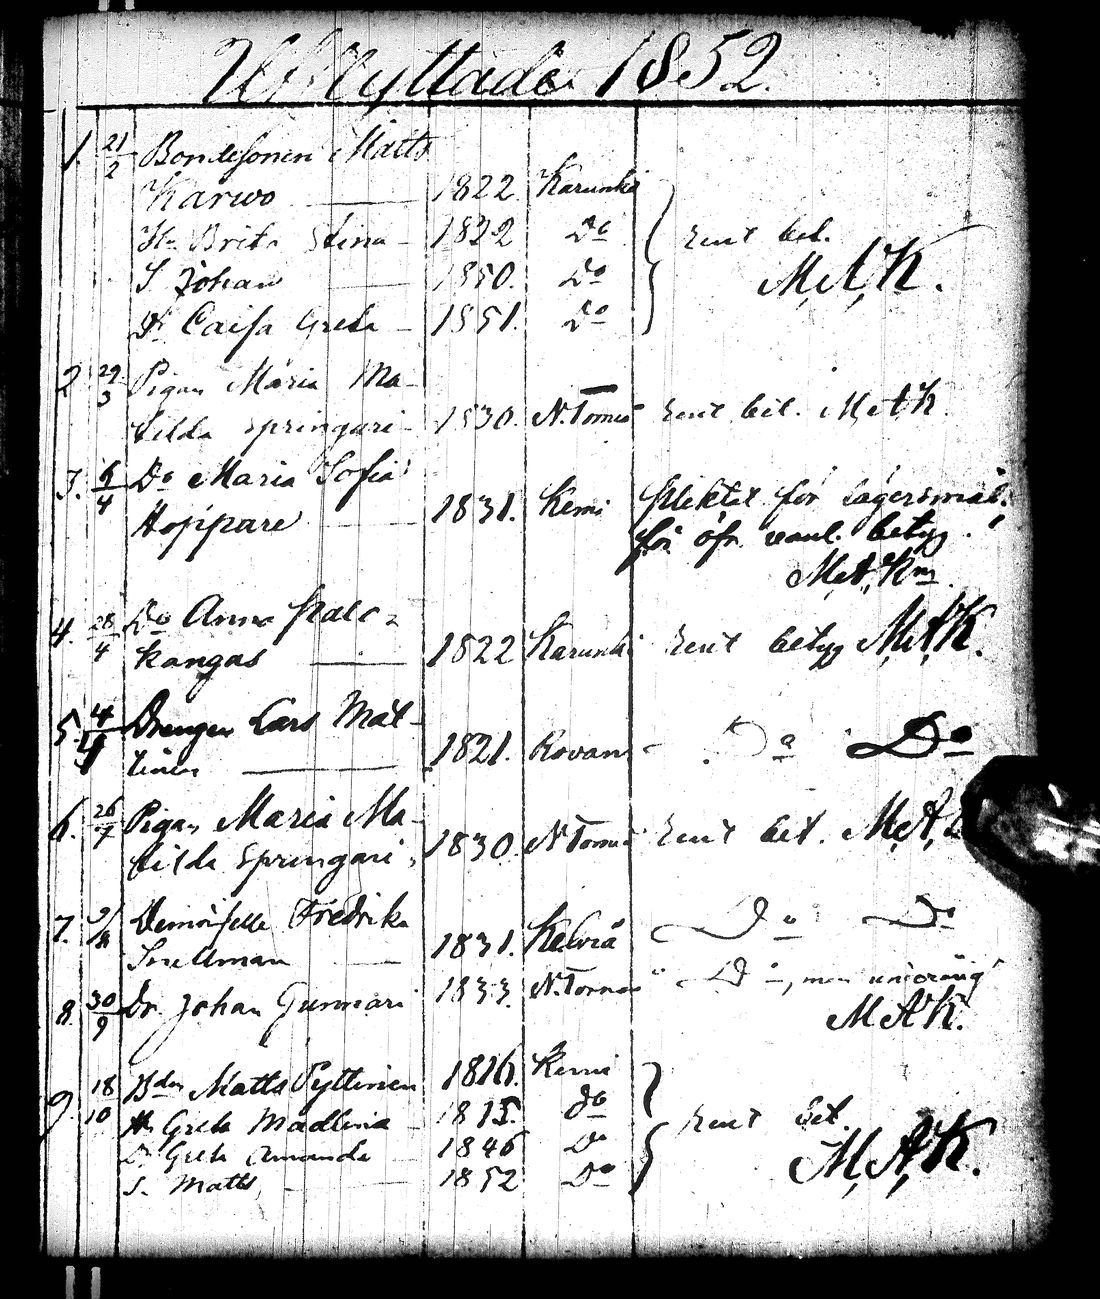 Utflyttade 1852.
1. 21/2 Bondesonen Matts
Karwo 1822 Karunki
Hu Brita Stina 1822 Do
S Johan 1850. Do
Dr Caisa Greta 1851. Do
bet.
M.A.K.
2 29/3 Pigan Maria Ma-
tilda Springari 1830. N.Torneå bet. M.A.K.
3. 6/4 Do Maria Sofia
Hoppare 1831. Kemi för lägersmål,
för öfr. vanl. betyg.
M.A.Km.
4. 28/4 Do Anna
kangas 1822 Karunki betyg M.A.K.
5. Drengen Lars Mat-
tinen 1821. Rovan Do Do
6. 26/7 Pigan Maria Ma-
tilda Springari, 1830. N Torneå bet. M.A.
7. Demoiselle Fredrika
Snellman 1831. Kelviå Do Do
8. 30/9 Dr. Johan Gunnari 1833. N.Torneå Do, men
M.A.K.
9. 18/10 Bdn Matts Pyttinen 1816. Kemi
Hu Greta Madlena 1815. do
Dr Greta Amanda 1846 Do
S. Matts 1852 Do
bet.
M.A.K.